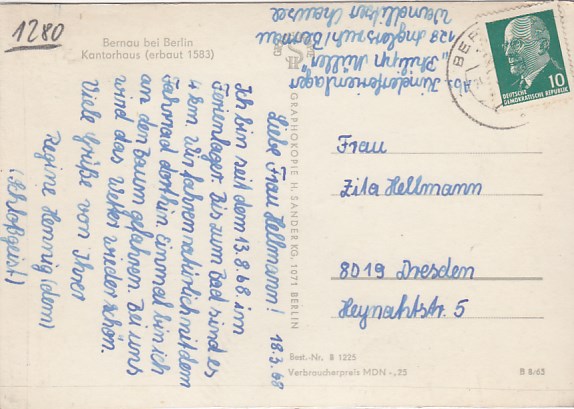 1280
Bernau bei Berlin
Kantorhaus (erbaut 1583)
Abs. Kinderferienlager
"Philipp Müller"
128 Bernau
Wandlitzer Chaussee
BER
10
DEUTSCHE
DEMOKRATISCHE REPUBLIK
18.3.68
Liebe Frau Hellmann!
Ich bin seit dem 13.8.68 im
Ferienlager. Bis zum Bad sind es
4 km. Wir fahren natürlich mit dem
Fahrrad dorthin. Einmal bin ich
an den Baum gefahren. Bei uns
wird das Wetter wieder schön.
Viele Grüße von Ihrer
Regine Hennig (dem)
(Schloßgeist)
GRAPHOKOPIE H. SANDER KG, 1071 BERLIN
Frau
Zita Hellmann
8019 Dresden
Heynahtstr. 5
Best.-Nr. B 1225
Verbraucherpreis MDN -,25
B 8/65